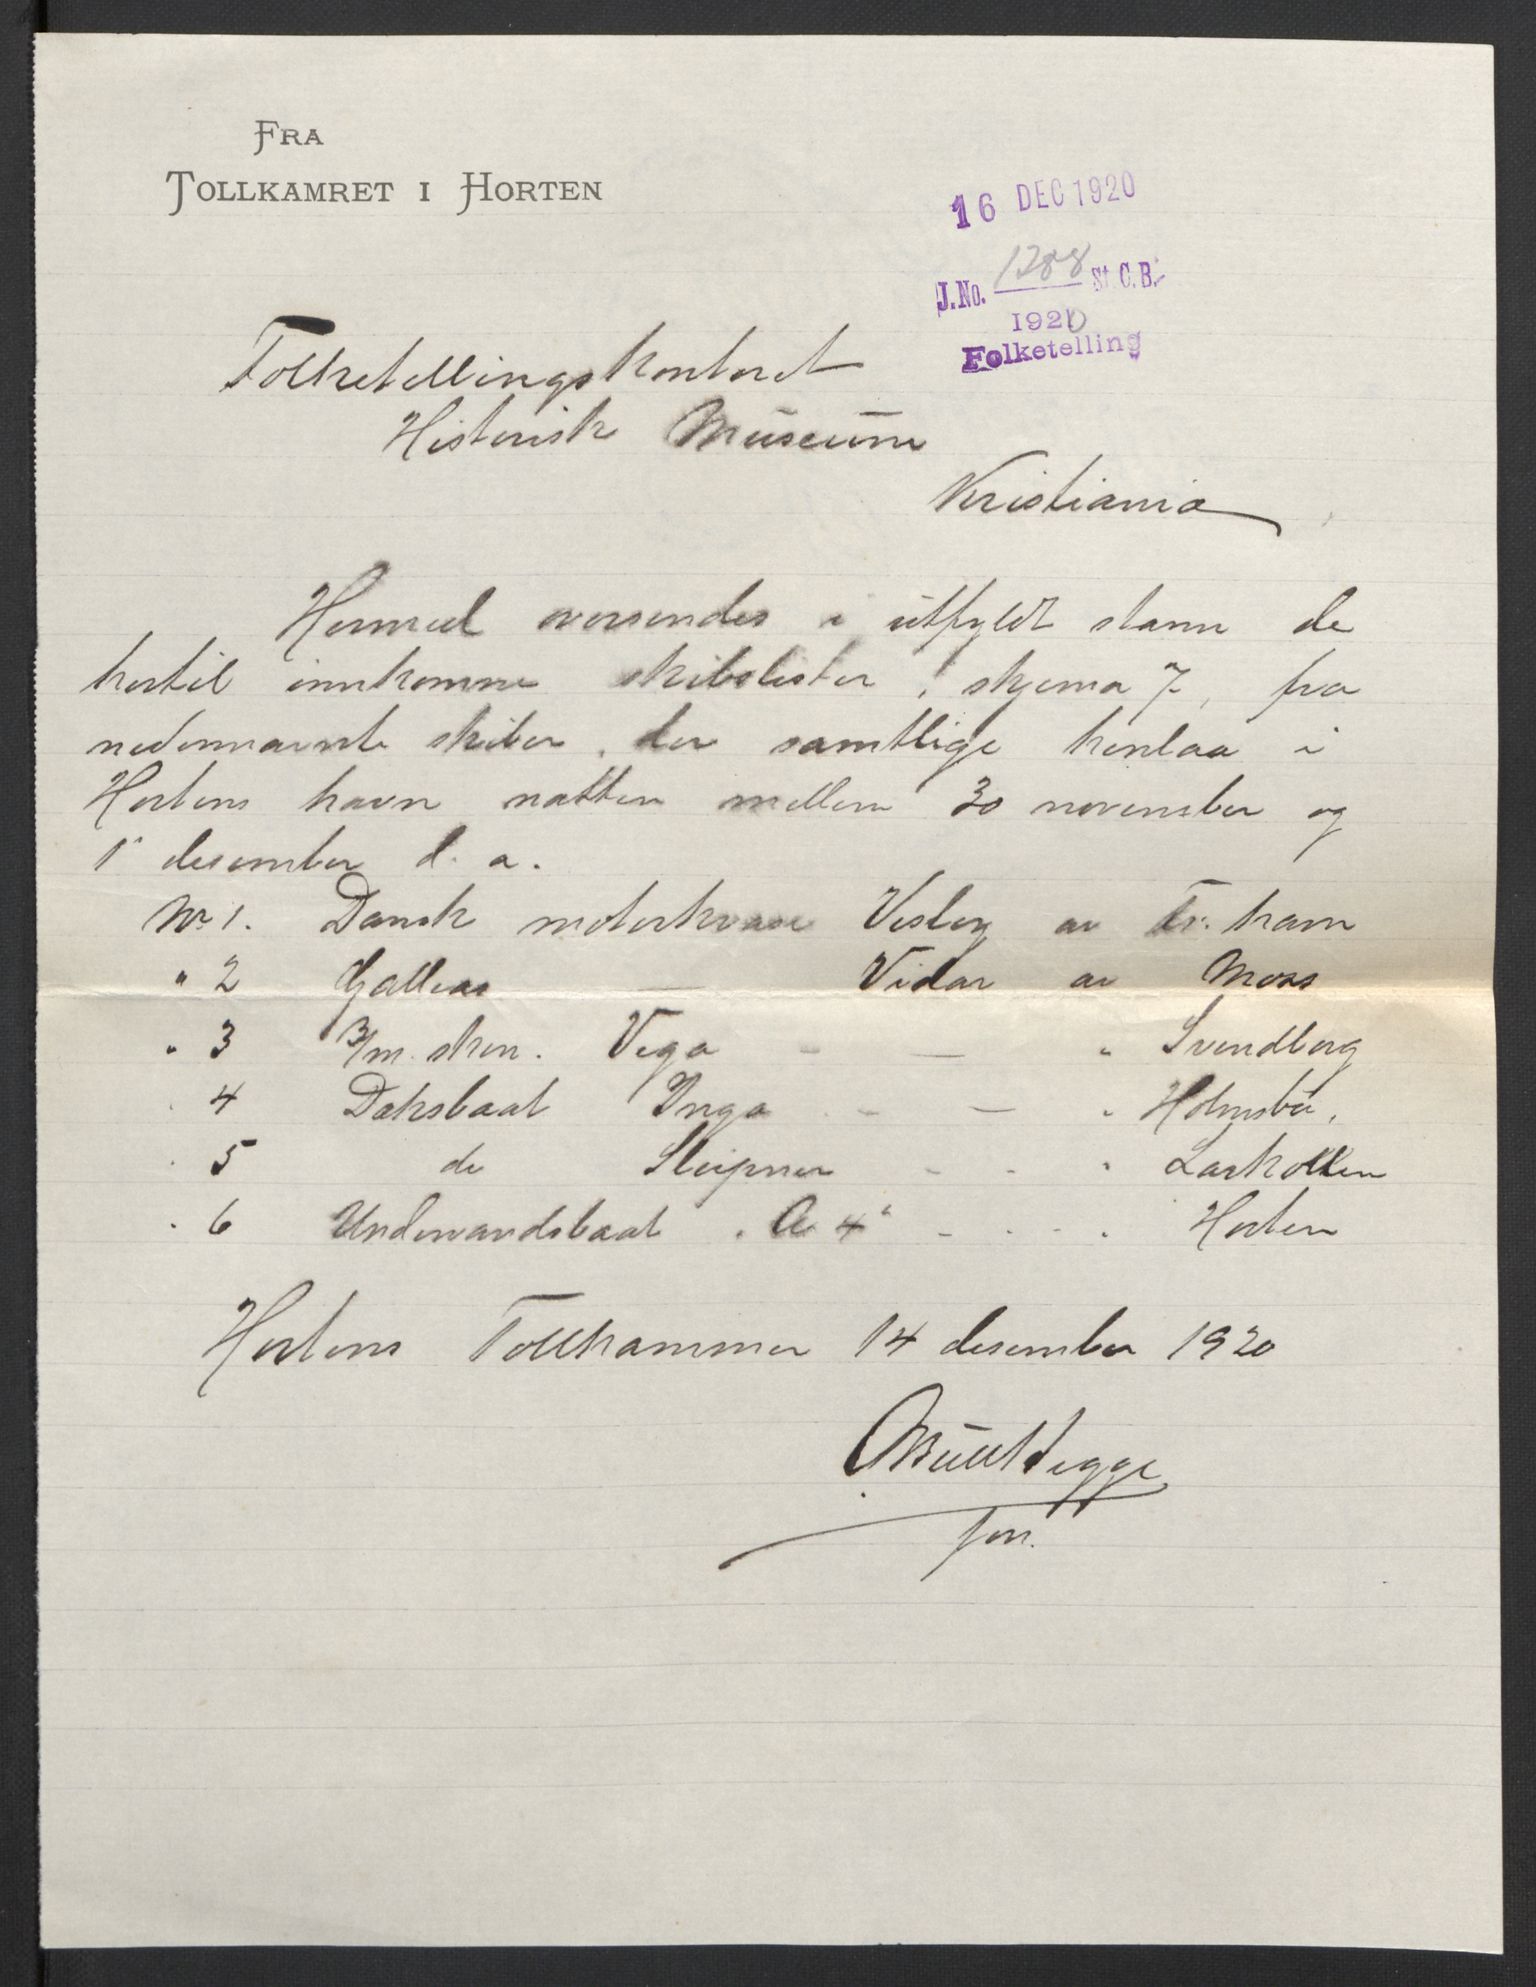 FRA
TOLLKAMRET I HORTEN
16 DEC 1920
J.No. 1288 St. C.B.
1920
Folketelling
Folketellingskontoret
Historisk Museum
Kristiania
Hermed oversendes i utfyldt stann de
hertil innkomne skibslister, skjema 7, fra
nedennævnte skiber, der samtlige henlaa i
Hortens havn natten mellem 30 november og
1 desember d. a.
No 1. Dansk motorkvase Vesborg av Fr. havn
" 2 Galleas — Vidar av Moss
" 3 3/m. skon. Vega - — " Svendborg
" 4 Däksbaat Inga - — " Holmsbu,
" 5 do Sleipner - - " Larkollen
" 6 Undervandsbaat "A 4" - - - " Horten
Hortens Tollkammer 14 desember 1920